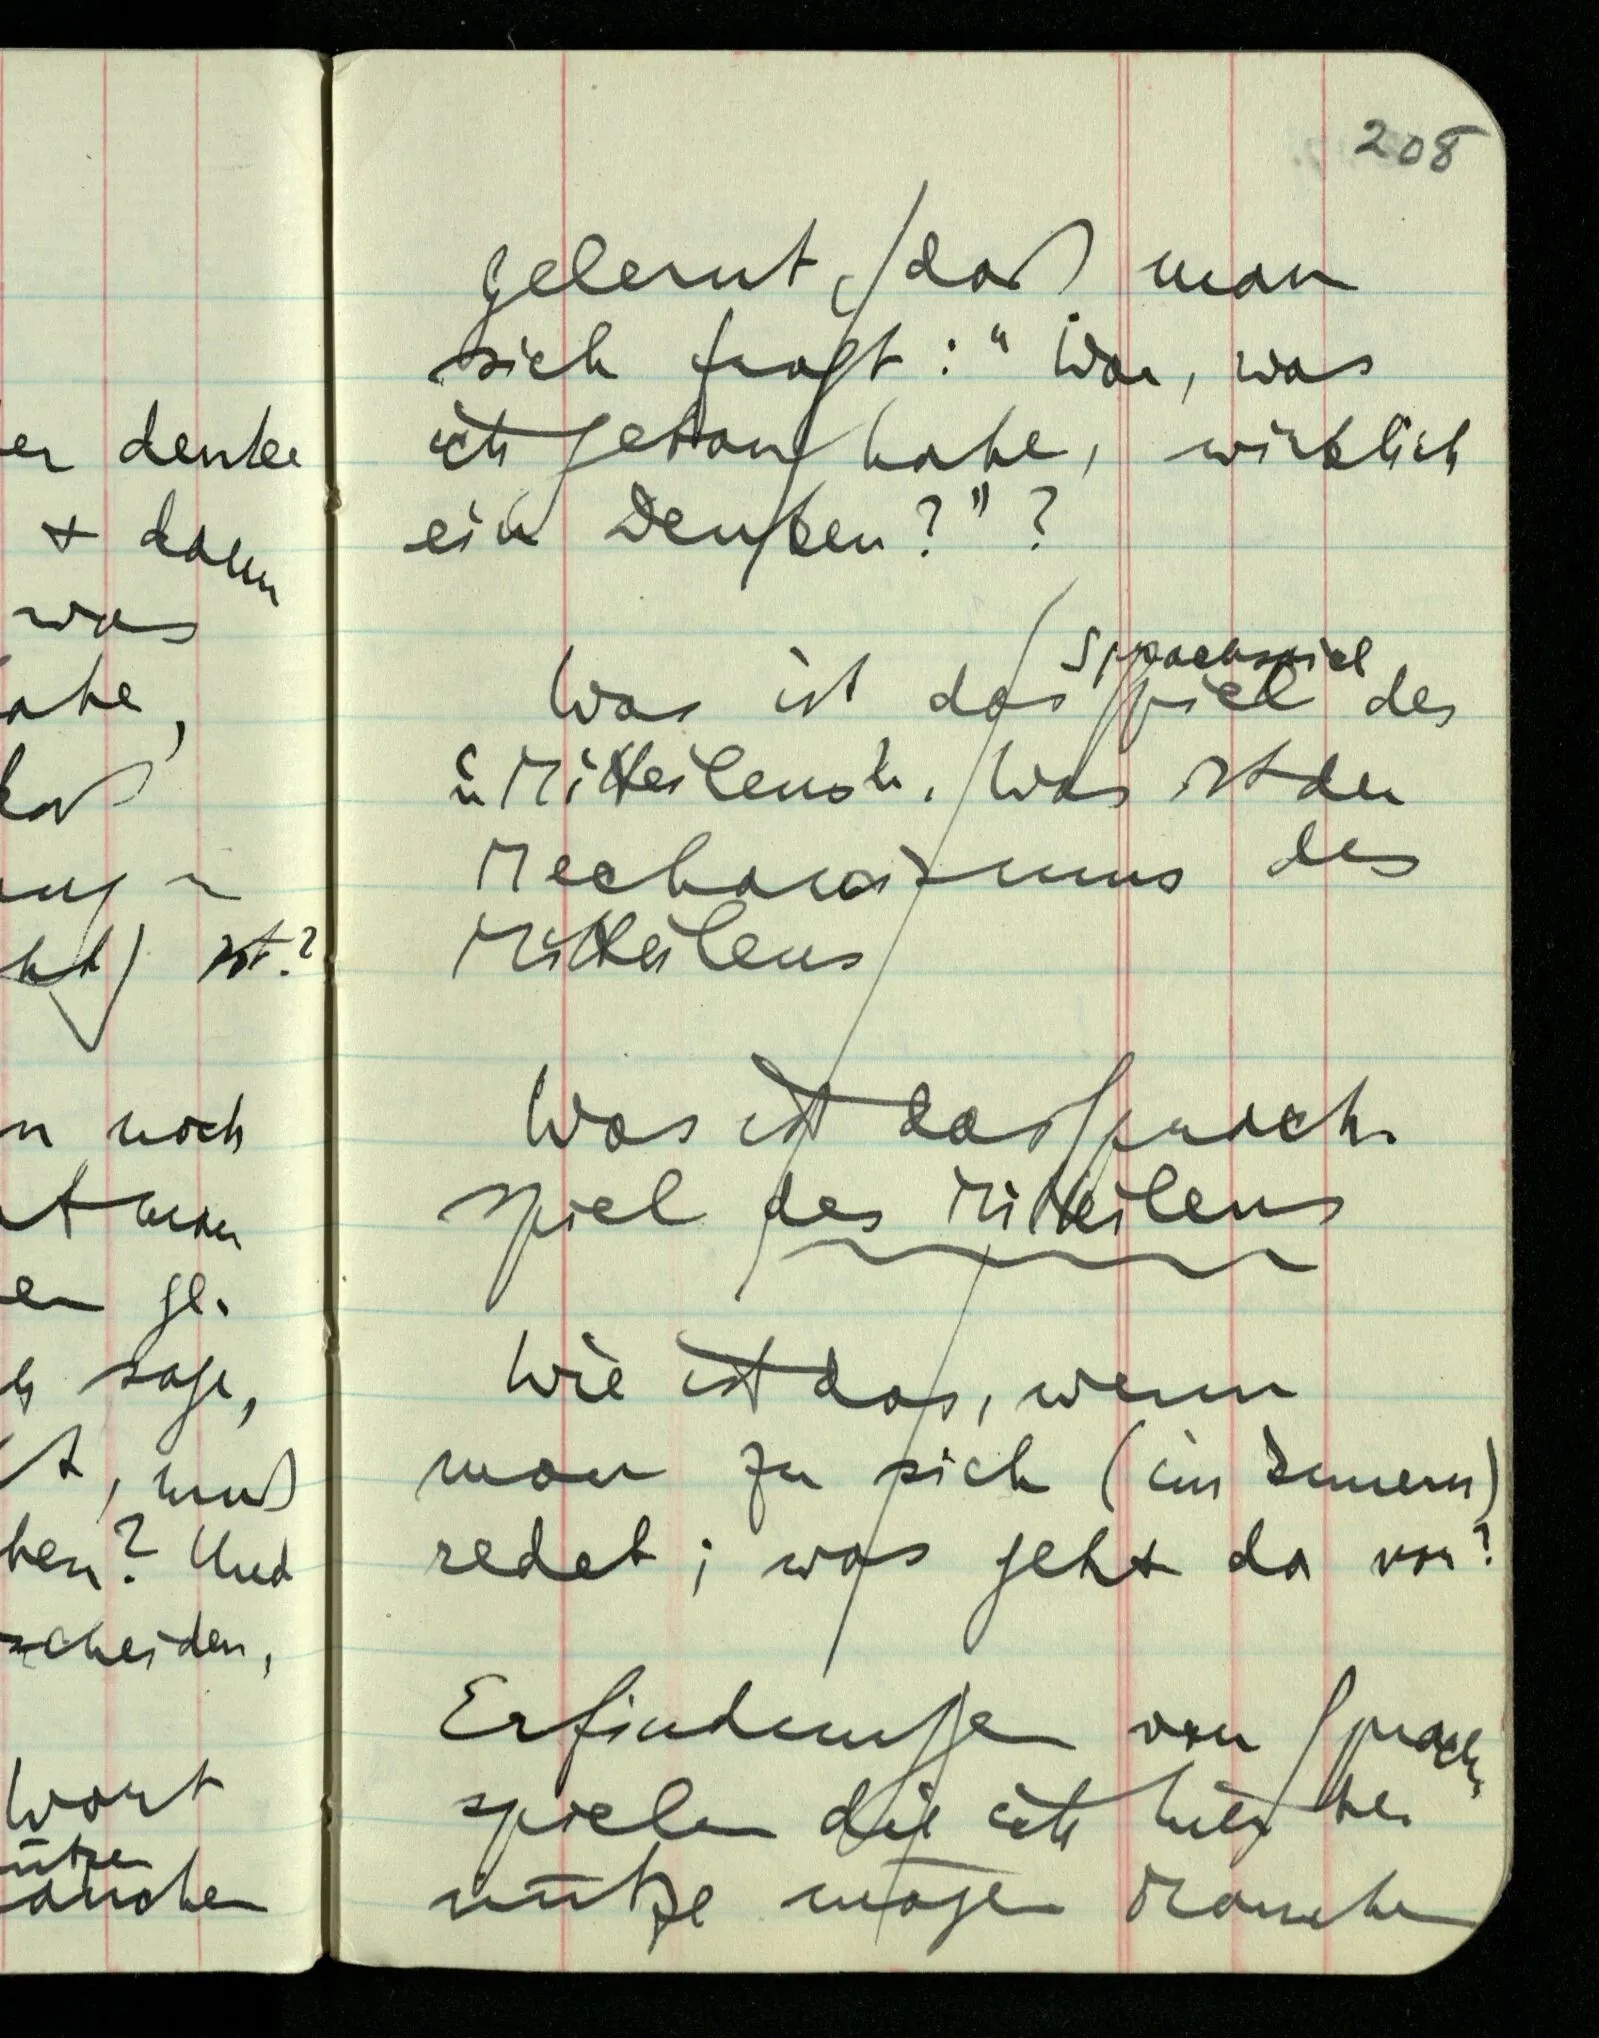 er denke
+ dann
was
abe,
ist?
n noch
t man
en ge-
h sage,
t, muß
ben? Und
scheiden,
Wort
ützen
auchen
208
gelernt, daß man
sich fragt: "War, was
ich getan habe, wirklich
ein Denken?"?
Sprachspiel
Was ist das Spiel des
Mitteilens. Was ist der
Mechanismus des
Mitteilens
Was ist das Sprach-
spiel des Mitteilens
Wie ist das, wenn
man zu sich (im Innern)
redet; was geht da vor?
Erfindungen von Sprach-
spielen die ich hier be-
nütze mögen Manchen